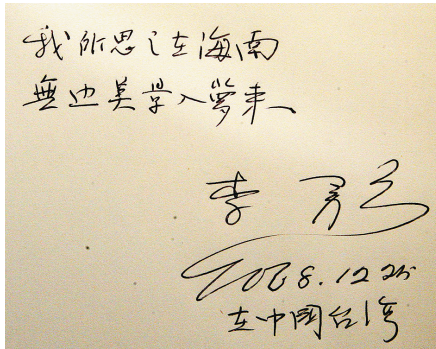 我所思之在海南
無边美景入夢来、
李
2008.12.25
在中國台湾